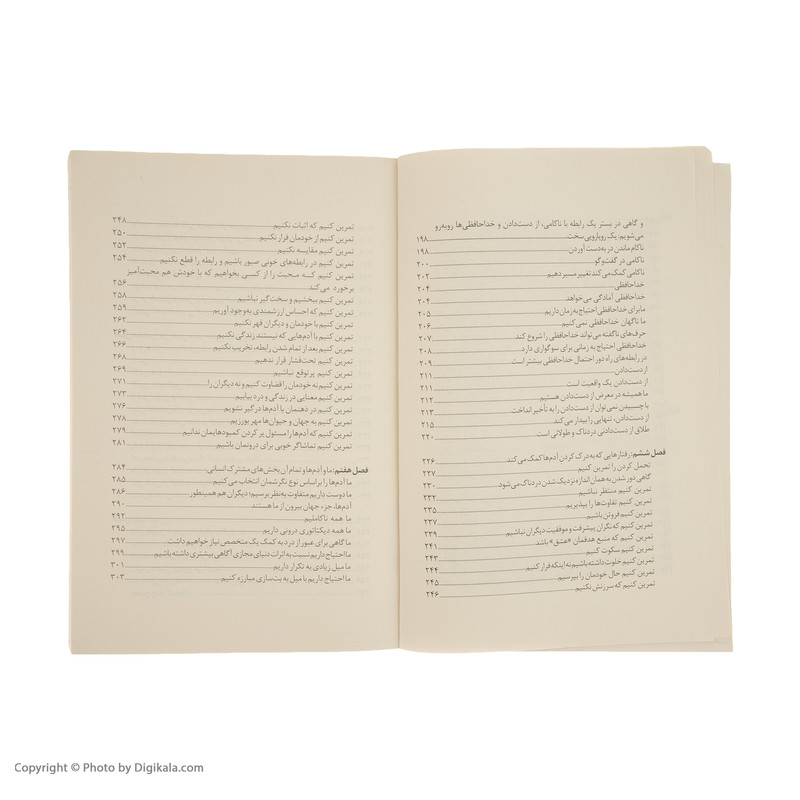 و گاهی در بستر یک رابطه با ناکامی، از دست‌دادن و خداحافظی‌ها روبه‌رو
می‌شویم: یک رویارویی سخت ۱۹۸
ناکام ماندن در به‌دست آوردن ۱۹۸
ناکامی در گفت‌وگو ۲۰۰
ناکامی کمک می‌کند تغییر مسیر دهیم ۲۰۲
خداحافظی ۲۰۴
خداحافظی آمادگی می‌خواهد ۲۰۴
ما برای خداحافظی احتیاج به زمان داریم ۲۰۵
ما ناگهان خداحافظی نمی‌کنیم ۲۰۶
حرف‌های ناگفته می‌تواند خداحافظی را شروع کند ۲۰۷
خداحافظی احتیاج به زمانی برای سوگواری دارد ۲۰۸
در رابطه‌های راه دور احتمال خداحافظی بیشتر است ۲۰۹
از دست‌دادن ۲۱۱
از دست‌دادن یک واقعیت است ۲۱۱
ما همیشه در معرض از دست‌دادن هستیم ۲۱۲
با چسبیدن نمی‌توان از دست‌دادن را به تأخیر انداخت ۲۱۳
از دست‌دادن، تنهایی را بیدار می‌کند ۲۱۵
طلاق از دست‌دادنی دردناک و طولانی است ۲۲۰
فصل ششم: رفتارهایی که به درک کردن آدم‌ها کمک می‌کند ۲۲۶
تحمل کردن را تمرین کنیم ۲۲۷
گاهی دور شدن به همان اندازه نزدیک شدن دردناک می‌شود ۲۳۰
تمرین کنیم منتظر نباشیم ۲۳۲
تمرین کنیم تفاوت‌ها را بپذیریم ۲۳۵
تمرین کنیم فروتن باشیم ۲۳۷
تمرین کنیم که نگران پیشرفت و موفقیت دیگران نباشیم ۲۳۹
تمرین کنیم که منبع هدفمان «عشق» باشد ۲۴۱
تمرین کنیم سکوت کنیم ۲۴۳
تمرین کنیم خلوت داشته باشیم نه اینکه فرار کنیم ۲۴۴
تمرین کنیم حال خودمان را بپرسیم ۲۴۵
تمرین کنیم که سرزنش نکنیم ۲۴۶
تمرین کنیم که اثبات نکنیم ۲۴۸
تمرین کنیم از خودمان فرار نکنیم ۲۵۰
تمرین کنیم مقایسه نکنیم ۲۵۲
تمرین کنیم در رابطه‌های خونی صبور باشیم و رابطه را قطع نکنیم ۲۵۴
تمرین کنیم کـه محبت را از کسی بخواهیم که با خودش هم محبت‌آمیز
برخورد می‌کند ۲۵۶
تمرین کنیم ببخشیم و سخت‌گیر نباشیم ۲۵۸
تمرین کنیم که احساس ارزشمندی به‌وجود آوریم ۲۵۹
تمرین کنیم با خودمان و دیگران قهر نکنیم ۲۶۲
تمرین کنیم با آدم‌هایی که نیستند زندگی نکنیم ۲۶۴
تمرین کنیم بعد از تمام شدن رابطه، تخریب نکنیم ۲۶۶
تمرین کنیم تحت‌فشار قرار ندهیم ۲۶۸
تمرین کنیم پرتوقع نباشیم ۲۶۹
تمرین کنیم نه خودمان را قضاوت کنیم و نه دیگران را ۲۷۱
تمرین کنیم معنایی در زندگی و درد بیابیم ۲۷۳
تمرین کنیم در ذهنمان با آدم‌ها درگیر نشویم ۲۷۶
تمرین کنیم به جهان و حیوان‌ها مهر بورزیم ۲۷۸
تمرین کنیم که آدم‌ها را مسئول پر کردن کمبودهایمان ندانیم ۲۷۹
تمرین کنیم تماشاگر خوبی برای درونمان باشیم ۲۸۱
فصل هفتم: ما و آدم‌ها و تمام آن بخش‌های مشترک انسانی ۲۸۴
ما آدم‌ها را براساس نوع نگرشمان انتخاب می‌کنیم ۲۸۵
ما دوست داریم متفاوت به‌نظر برسیم؛ دیگران هم همینطور ۲۸۶
آدم‌ها، جزء جهان بیرون از ما هستند ۲۹۰
ما همه ناکاملیم ۲۹۲
ما همه دیکتاتوری درونی داریم ۲۹۵
ما گاهی برای عبور از درد به کمک یک متخصص نیاز خواهیم داشت ۲۹۷
ما احتیاج داریم نسبت به اثرات دنیای مجازی آگاهی بیشتری داشته باشیم ۲۹۹
ما میل زیادی به تکرار داریم ۳۰۱
ما احتیاج داریم با میل به بت‌سازی مبارزه کنیم ۳۰۳
Copyright © Photo by Digikala.com